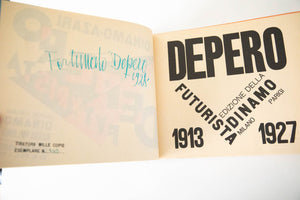 Fortunato Depero
1928
TIRATURA MILLE COPIE
ESEMPLARE N.
DEPERO
FUTURISTA
EDIZIONE DELLA
DINAMO
MILANO PARIGI
1913 1927